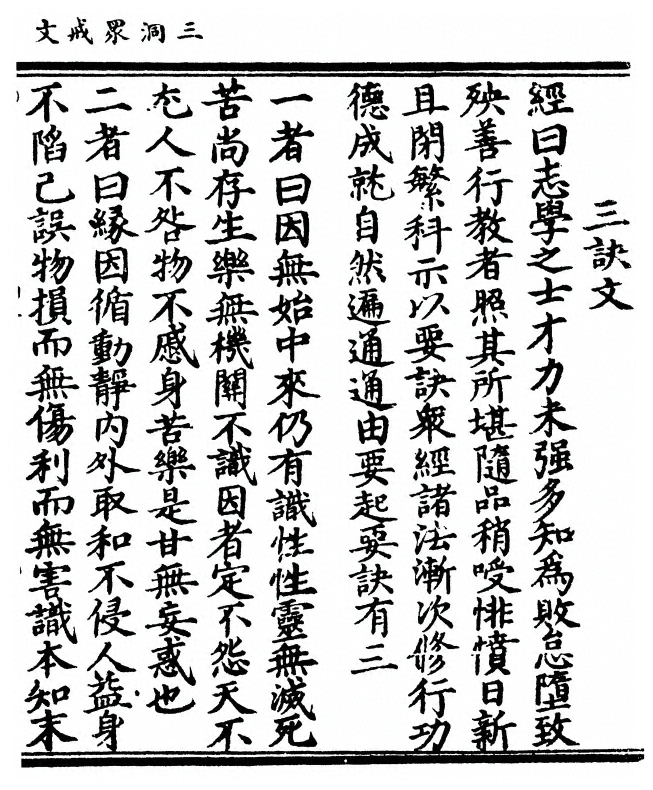 三洞眾戒文
三訣文
經曰志學之士才力未强多知為敗怠墮致
殃善行教者照其所堪隨品稍嗳悱憤日新
且閉繁科示以要訣衆經諸法漸次修行功
德成就自然遍通通由要起要訣有三
一者曰因無始中來仍有識性性靈無滅死
苦尚存生樂無機關不識因者定不怨天不
尤人不咎物不慼身苦樂是甘無妄惑也
二者曰緣因循動靜内外取和不侵人益身
不陷己誤物損而無傷利而無害識本知末